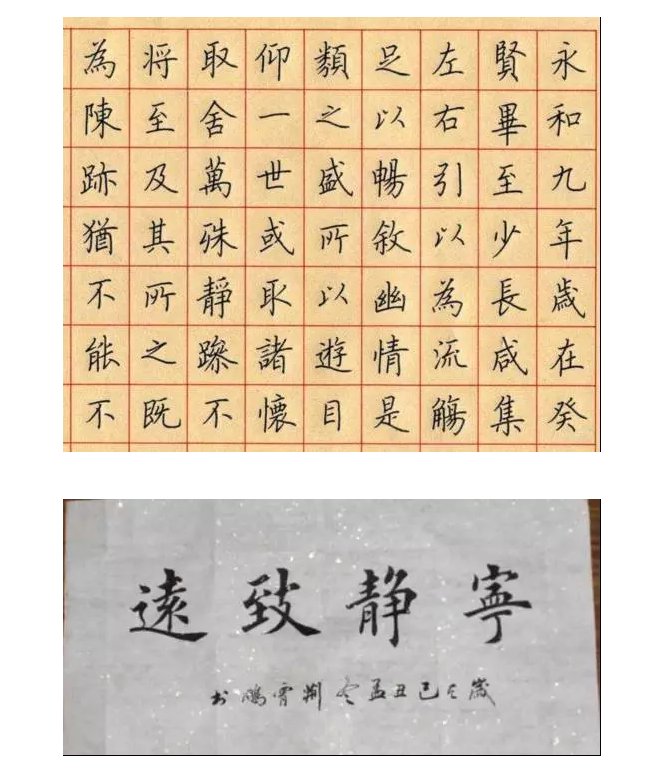 永和九年歲在癸
賢畢至少長咸集
左右引以為流觴
足以暢敘幽情是
類之盛所以遊目
仰一世或取諸懷
取舍萬殊靜躁不
将至及其所之既
為陳跡猶不能不
寧静致遠
歲在己丑孟冬荆霄鵬书